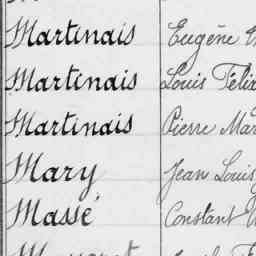 Martinais Eugène
Martinais Louis Félix
Martinais Pierre Mar
Mary Jean Louis
Massé Constant